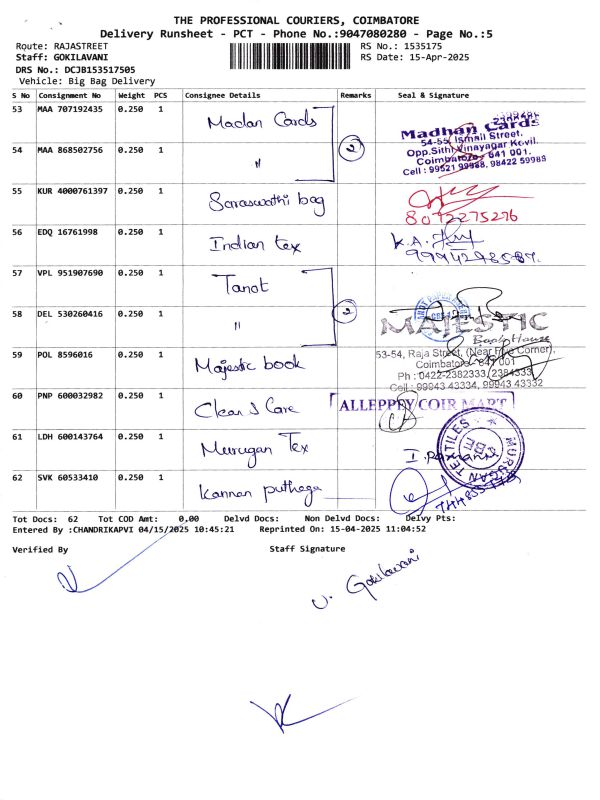 THE PROFESSIONAL COURIERS, COIMBATORE
Delivery Runsheet - PCT - Phone No.:9047080280 - Page No.:5
Route: RAJASTREET RS No.: 1535175
Staff: GOKILAVANI RS Date: 15-Apr-2025
DRS No.: DCJB153517505
Vehicle: Big Bag Delivery
S No Consignment No Weight PCS Consignee Details Remarks Seal & Signature
53 MAA 707192435 0.250 1 Madan Cards
Madhan Cards
54-55, Ismail Street,
Opp.Sithi Vinayagar Kovil,
Coimbatore - 641 001.
Cell : 99521 99988, 98422 59988
54 MAA 868502756 0.250 1 " 2
55 KUR 4000761397 0.250 1 Saraswathi bag
8072275276
56 EDQ 16761998 0.250 1 Indian tex K.A.
57 VPL 951907690 0.250 1 Tanot
58 DEL 530260416 0.250 1 " 2
MAJESTIC
Book House
53-54, Raja Street, (Near Five Corner),
Coimbatore - 641 001
Ph : 0422-2382333, 2384333
Cell : 99943 43334, 99943 43332
59 POL 8596016 0.250 1 Majestic book
60 PNP 600032982 0.250 1 Clean & Care ALLEPPEY COIR MART
61 LDH 600143764 0.250 1 Murugan Tex
MURUGAN TEXTILES
CBE
62 SVK 60533410 0.250 1 Kannan puthaga
Tot Docs: 62 Tot COD Amt: 0.00 Delvd Docs: Non Delvd Docs: Delvy Pts:
Entered By :CHANDRIKAPVI 04/15/2025 10:45:21 Reprinted On: 15-04-2025 11:04:52
Verified By Staff Signature
V. Gokilavani